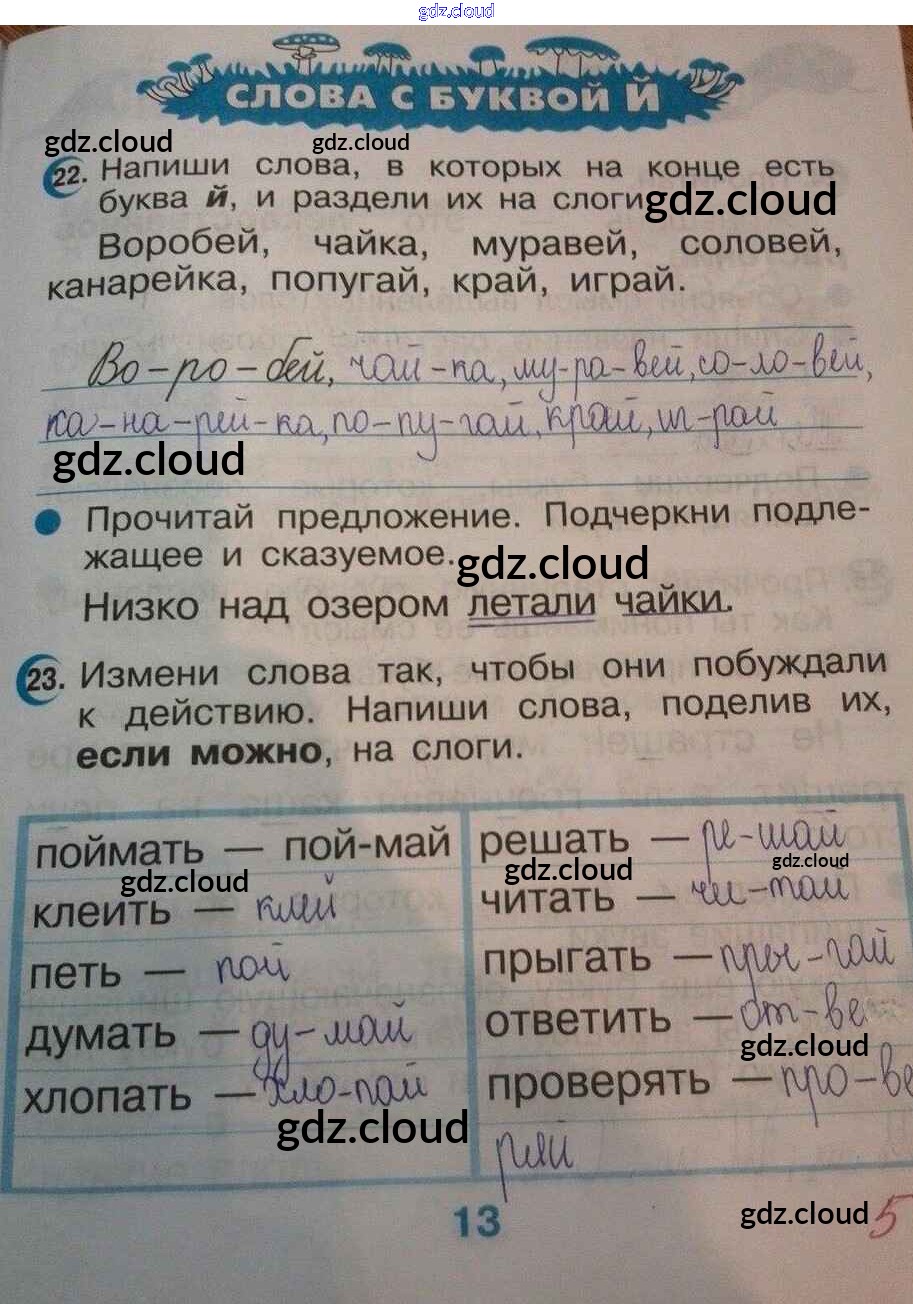 gdz.cloud
СЛОВА С БУКВОЙ Й
gdz.cloud gdz.cloud
22. Напиши слова, в которых на конце есть
буква й, и раздели их на слоги gdz.cloud
Воробей, чайка, муравей, соловей,
канарейка, попугай, край, играй.
Во-ро-бей, чай-ка, му-ра-вей, со-ло-вей,
ка-на-рей-ка, по-пу-гай, край, иг-рай
gdz.cloud
Прочитай предложение. Подчеркни подле-
жащее и сказуемое. gdz.cloud
Низко над озером летали чайки.
23. Измени слова так, чтобы они побуждали
к действию. Напиши слова, поделив их,
если можно, на слоги.
поймать — пой-май
gdz.cloud
клеить — клей
петь — пой
думать — ду-май
хлопать — хло-пай
gdz.cloud
решать — ре-шай
gdz.cloud gdz.cloud
читать — чи-тай
прыгать — пры-гай
ответить — от-ве
gdz.cloud
проверять — про-ве
ряй
13
gdz.cloud 5